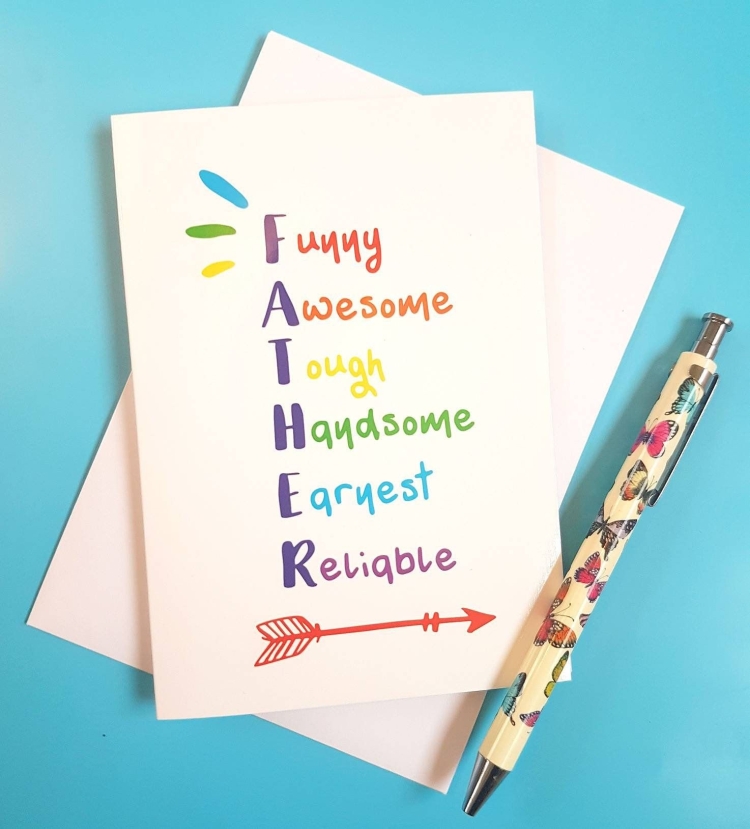 Funny
Awesome
Tough
Handsome
Earnest
Reliable